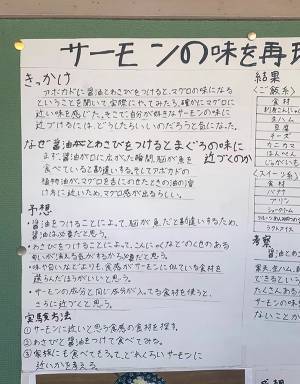 サーモンの味を再現
きっかけ
アボカドに醤油とわさびをつけると、マグロの味になる
ということを聞いて、実際にやってみたら、確かにマグロに
近い味を感じた。そこで自分が好きなサーモンの味に
近づけるには、どうしたらいいのだろうと気になった。
なぜ醤油がとわさびをつけるとまぐろの味に
近づくのか
まず、醤油が口に広がった瞬間、脳が魚を
食べていると勘違いする。そしてアボカドの
植物油が、マグロを舌にのせたときの油の溶
け方に近いため、マグロ感が出るらしい。
予想
・醤油をつけることによって、脳が魚だと勘違いをするため、
醤油は必要だと思う。
・わさびをつけることによって、こんにゃくなどのくさのある
匂いが消える気がするから必要だと思う。
・味や匂いなどよりも、食感がサーモンに似ている食材を
選んだほうがいいと思う。
・サーモンの成分と同じ成分が入ってる食材を使うと、
さらに近づくと思う。
実験方法
①サーモンに近いと思う食感の食材を探す。
②わさびと醤油をつけて食べてみる。
③家族にも食べてもらって、どれくらいサーモンに
近いかを考える。
結果
〈ご飯系〉
食材
生ハム
豆腐
チーズ
カニカマ
はんぺん
〈スイーツ系〉
食材
バナナ
プリン
シュークリーム
考察
醤油と
できるという
たくさんある
サーモンの味
ないことか